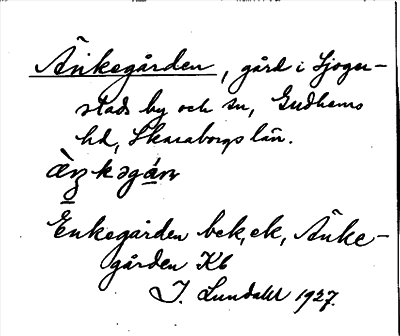 Änkegården, gård i Sjoger-
stads by och sn, Gudhems
hd, Skaraborgs län.
àŋkəgán
Enkegården bek, ek, Änke-
gården Kb
I. Lundahl 1927.